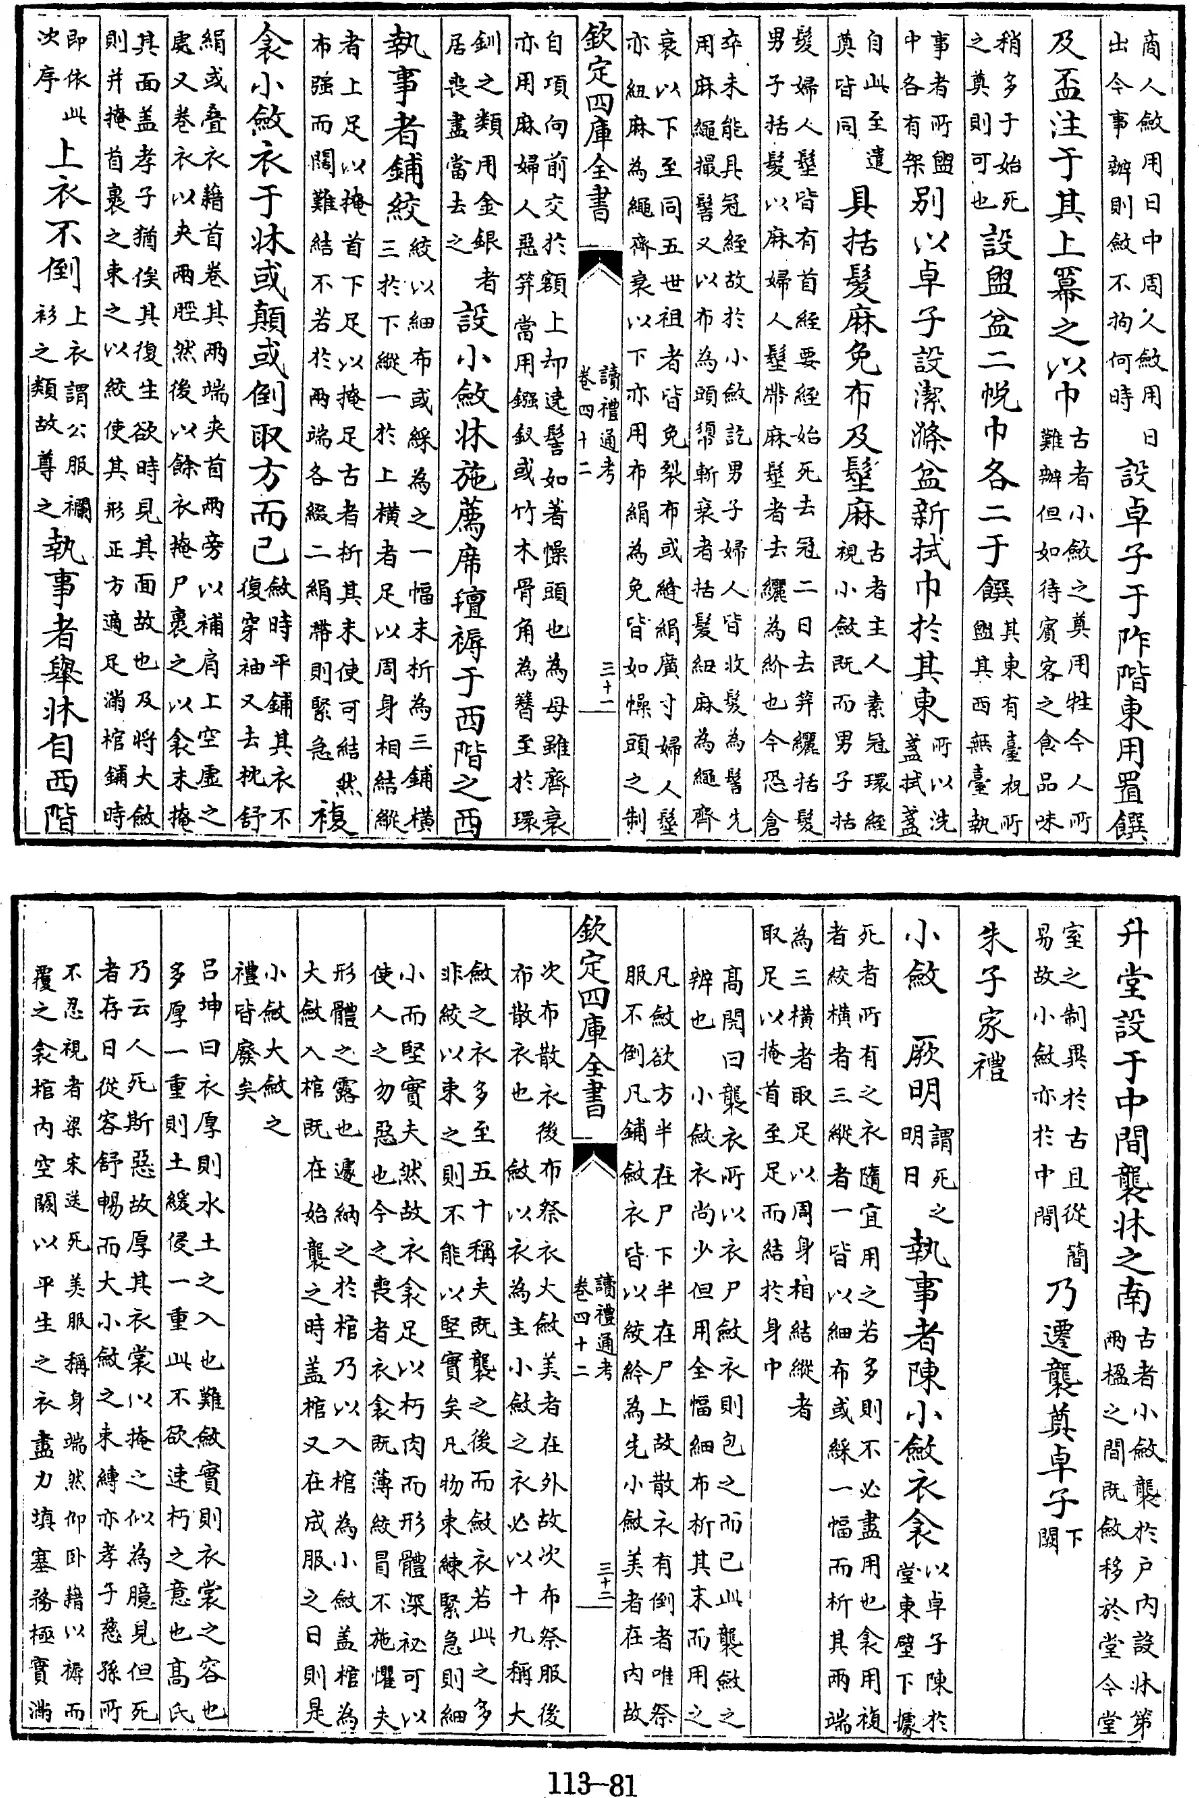 商人斂用日中周人斂用日
出今事辦則斂不拘何時
設卓子于阼階東用置饌
及盃注于其上冪之以巾
古者小斂之奠用牲今人所
難辦但如待賓客之食品味
稍多于始死
之奠則可也
設盥盆二帨巾各二于饌
其東有臺祝所
盥其西無臺執
事者所盥
中各有架
別以卓子設潔滌盆新拭巾於其東
所以洗
盞拭盞
自此至遣
奠皆同
具括髮麻免布及髽麻
古者主人素冠環絰
視小斂既而男子括
髮婦人髽皆有首絰要絰始死去冠二日去笄纚括髮
男子括髮以麻婦人髽帶麻髽者去纚為紒也今恐倉
卒未能具冠絰故於小斂訖男子婦人皆收髮為髻先
用麻繩撮髻又以布為頭斬衰者括髮紐麻為繩齊
衰以下至同五世祖者皆免裂布或縫絹廣寸婦人髽
亦紐麻為繩齊衰以下亦用布絹為免皆如幧頭之制
欽定四庫全書
讀禮通考
卷四十二
三十一
自項向前交於額上却遶髻如著幧頭也為母雖齊衰
亦用麻婦人惡笄當用釵或竹木骨角為簪至於環
釧之類用金銀者
居喪盡當去之
設小斂牀施薦席氊褥于西階之西
執事者鋪絞
絞以細布或綵為之一幅末析為三鋪橫
三於下縱一於上橫者足以周身相結縱
者上足以掩首下足以掩足古者析其末使可結然
布強而闊難結不若於兩端各綴二絹帶則緊急
複
衾小斂衣于牀或顛或倒取方而已
斂時平鋪其衣不
復穿袖又去枕舒
絹或疊衣藉首卷其兩端夾首兩旁以補肩上空虛之
處又卷衣以夾兩脛然後以餘衣掩尸裹之以衾未掩
其面蓋孝子猶俟其復生欲時見其面故也及將大斂
則并掩首裹之束之以絞使其形正方適足滿棺鋪時
即依此
次序
上衣不倒
上衣謂公服襴
衫之類故尊之
執事者舉牀自西階
升堂設于中間襲牀之南
古者小斂襲於戶內設牀第
兩楹之間既斂移於堂今堂
室之制異於古且從簡
易故小斂亦於中間
乃遷襲奠卓子
下
闕
朱子家禮
小斂 厥明
謂死之
明日
執事者陳小斂衣衾
以卓子陳於
堂東壁下據
死者所有之衣隨宜用之若多則不必盡用也衾用複
者絞橫者三縱者一皆以細布或綵一幅而析其兩端
為三橫者取足以周身相結縱者
取足以掩首至足而結於身中
高閌曰襲衣所以衣尸斂衣則包之而已此襲斂之
辨也 小斂衣尚少但用全幅細布析其末而用之
凡斂欲方半在尸下半在尸上故散衣有倒者唯祭
服不倒凡鋪斂衣皆以絞紟為先小斂美者在內故
欽定四庫全書
讀禮通考
卷四十二
三十二
次布散衣後布祭衣大斂美者在外故次布祭服後
布散衣也 斂以衣為主小斂之衣必以十九稱大
斂之衣多至五十稱夫既襲之後而斂衣若此之多
非絞以束之則不能以堅實矣凡物束練緊急則細
小而堅實夫然故衣衾足以朽肉而形體深祕可以
使人之勿惡也今之喪者衣衾既薄絞冒不施懼夫
形體之露也遽納之於棺乃以入棺為小斂蓋棺為
大斂入棺既在始襲之時蓋棺又在成服之日則是
小斂大斂之
禮皆廢矣
呂坤曰衣厚則水土之入也難斂實則衣裳之容也
多厚一重則土緩侵一重此不欲速朽之意也高氏
乃云人死斯惡故厚其衣裳以掩之似為臆見但死
者存日從容舒暢而大小斂之束縛亦孝子慈孫所
不忍視者梁宋送死美服稱身端然仰卧藉以褥而
覆之衾棺內空闕以平生之衣盡力填塞務極實滿
113-81